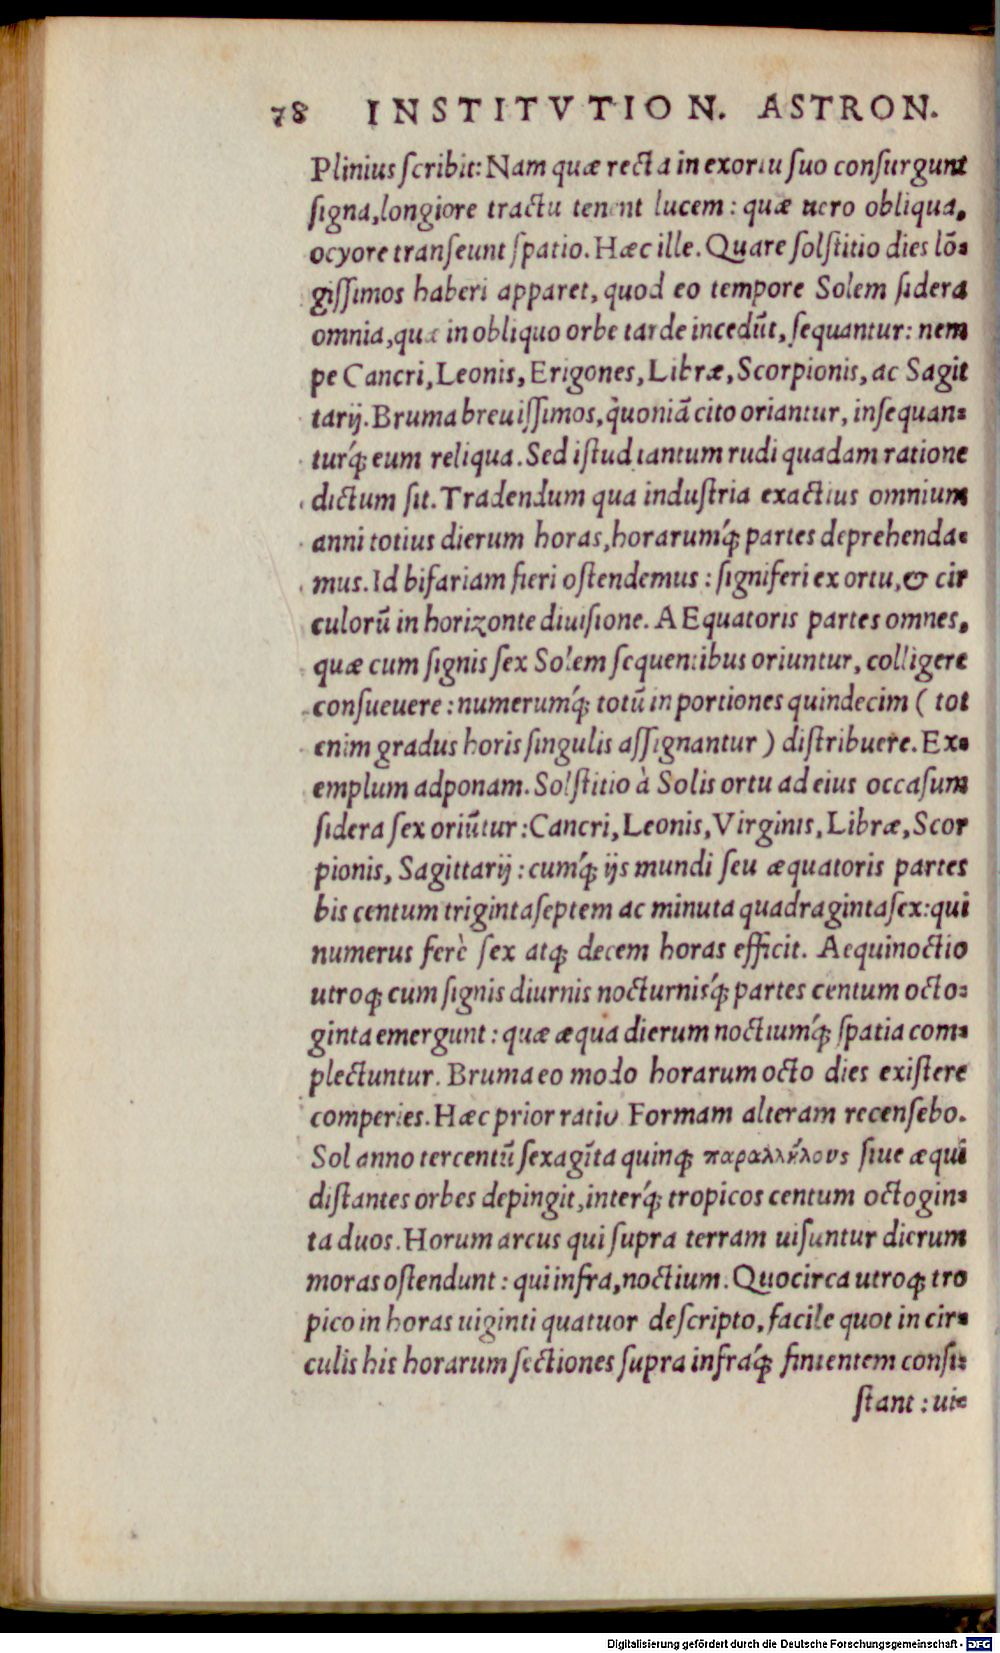 78 INSTITVTION. ASTRON.
Plinius ſcribit: Nam quæ recta in exortu ſuo conſurgunt
ſigna, longiore tractu tenent lucem: quæ uero obliqua,
ocyore tranſeunt ſpatio. Hæc ille. Quare ſolſtitio dies lõ-
giſſimos haberi apparet, quod eo tempore Solem ſidera
omnia, quæ in obliquo orbe tarde incedũt, ſequantur: nem
pe Cancri, Leonis, Erigones, Libræ, Scorpionis, ac Sagit
tarij. Bruma breuiſſimos, quoniã cito oriantur, inſequan-
turq́; eum reliqua. Sed iſtud tantum rudi quadam ratione
dictum ſit. Tradendum qua induſtria exactius omnium
anni totius dierum horas, horarumq́; partes deprehenda-
mus. Id bifariam fieri oſtendemus: ſigniferi ex ortu, & cir
culorũ in horizonte diuiſione. AEquatoris partes omnes,
quæ cum ſignis ſex Solem ſequentibus oriuntur, colligere
conſueuere: numerumq́; totũ in portiones quindecim ( tot
enim gradus horis ſingulis aſſignantur ) diſtribuere. Ex-
emplum adponam. Solſtitio à Solis ortu ad eius occaſum
ſidera ſex oriũtur: Cancri, Leonis, Virginis, Libræ, Scor
pionis, Sagittarij: cumq́; ijs mundi ſeu æquatoris partes
bis centum trigintaſeptem ac minuta quadragintaſex: qui
numerus ferè ſex atq; decem horas efficit. Aequinoctio
utroq; cum ſignis diurnis nocturnisq́; partes centum octo-
ginta emergunt: quæ æqua dierum noctiumq́; ſpatia com-
plectuntur. Bruma eo modo horarum octo dies exiſtere
comperies. Hæc prior ratio Formam alteram recenſebo.
Sol anno tercentũ ſexagĩta quinq; παραλλήλους ſiue æqui
diſtantes orbes depingit, interq́; tropicos centum octogin-
ta duos. Horum arcus qui ſupra terram uiſuntur dierum
moras oſtendunt: qui infra, noctium. Quocirca utroq; tro
pico in horas uiginti quatuor deſcripto, facile quot in cir-
culis his horarum ſectiones ſupra infraq́; finientem conſi-
ſtant: ui-
Digitalisierung gefördert durch die Deutsche Forschungsgemeinschaft - DFG